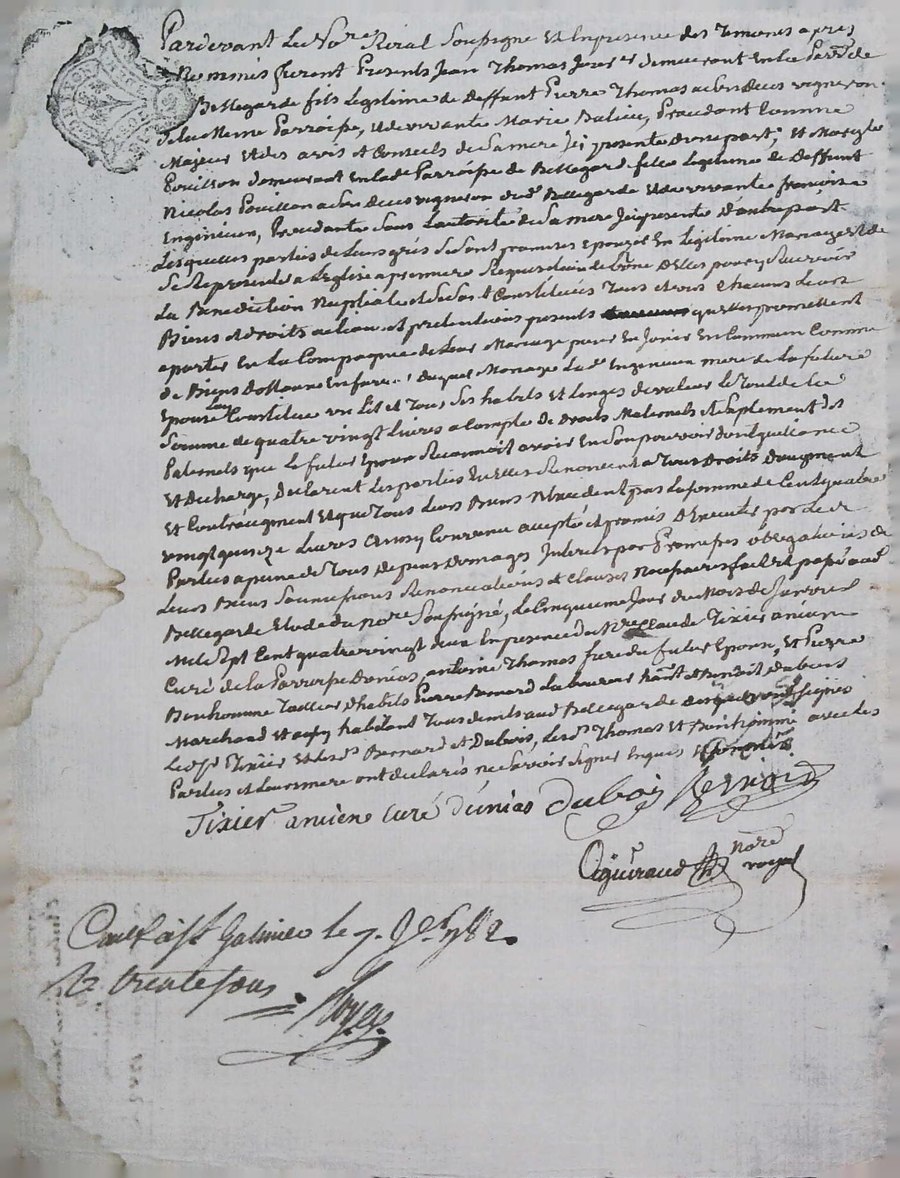 Pardevant Le No.re Roial Soussigné Et En presence des Temoins apres
Nommés furent Presents Jean Thomas demeurant En la Parr.e de
Bellegarde fils Legitime de deffunt Pierre Thomas a son deces vigneron
de la Meme Parroisse, et de vivante Marie Procedant Comme
Majeur et des avis et Conseils de Sa mere Jci presente d'une part; et
Pouillon demeurant En lad.e Parroisse de Bellegarde fille Legitime de Deffunt
Nicolas Pouillon a son deces vigneron dud. Bellegarde et de vivante francoise
Enginieux, Procedante Sous L'autorité de Sa mere Jci presente d'autre part
Lesquelles parties de Leurs grés Se Sont promises Epouser En Legitime Mariage et de
Se Representer a L'Eglise a premiere Requisition de L'une D'Elles pour y Recevoir
La Benediction Nuptiale et Se Sont Constitués Tous et Chacuns Leurs
Biens et droits actions et pretentions presents que Elles promettent
aporter En La Compagnie de Leur Mariage pour En Jouir En Commun Comme
de Biens duquel Mariage La d.e Enginieux mere de La future
Epouse Constitue un Lit et Tous Ses habits et Linges de valeur Le Tout de La
Somme de quatre vingt Livres a Compte de droits Maternels et Suplement de
Paternels que Le futur Epoux Reconnoit avoir En Son pouvoir dont quittance
Et decharge, declarent Les parties qu'Elles Renoncent a Tous Droits d'augment
et Contraugment et que Tous Leurs Biens N'Excedent pas La Somme de Cent quatre
vingt quinze Livres ainsy Convenu accepté et promis d'Executer par Les
Parties a peine de Tous depens domages Interets par Promesses obligations de
Leurs Biens Soumissions Renonciations et Clauses Necessaires fait et passé aud.
Bellegarde Etude du No.re Soussigné, Le Cinquieme Jour du Mois de Janvier
Mil Sept Cent quatre vingt deux En presence de M.re Claude Tixier ancien
Curé de la Parroisse d'unias, antoine Thomas frere du futur Epoux, et Pierre
Bonhomme Tailleur d'habits Pierre Bernard Laboureur et Benoit Dubois
Marchand habitant Tous demts aud. Bellegarde Signés
Led. S.r Tixier et Lesd.s Bernard et Dubois, Lesd.s Thomas et Bonhomme avec Les
Parties et Leurs mere ont declarés ne Savoir Signer Enquis et
Tixier ancien curé d'unias Dubois Bernard
Guiraud no.re royal
Con.lé à St Galmier le 7. Ja.er 1782.
R. trente Sous